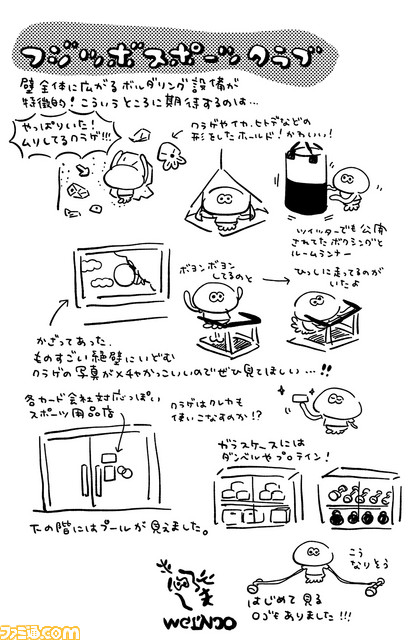 フジツボスポーツクラブ
壁全体に広がるボルダリング設備が
特徴的!こういうところに期待するのは…
やっぱりいた!
ムリしてるクラゲ!!!
クラゲやイカ、ヒトデなどの
形をしたホールド!かわいい!
ツイッターでも公開
されてたボクシングと
ルームランナー
ボヨンボヨン
してるのと
ひっしに走ってるのが
いたよ
かざってあった、
ものすごい絶壁にいどむ
クラゲの写真がメチャかっこいいのでぜひ見てほしい…!!
各カード会社対応っぽい
スポーツ用品店
クラゲはクレカも
使いこなすのか!?
ガラスケースには
ダンベルやプロテイン!
下の階にはプールが見えました。
こう
なりそう
はじめて見る
ロゴもありました!!!
ファミ通.com